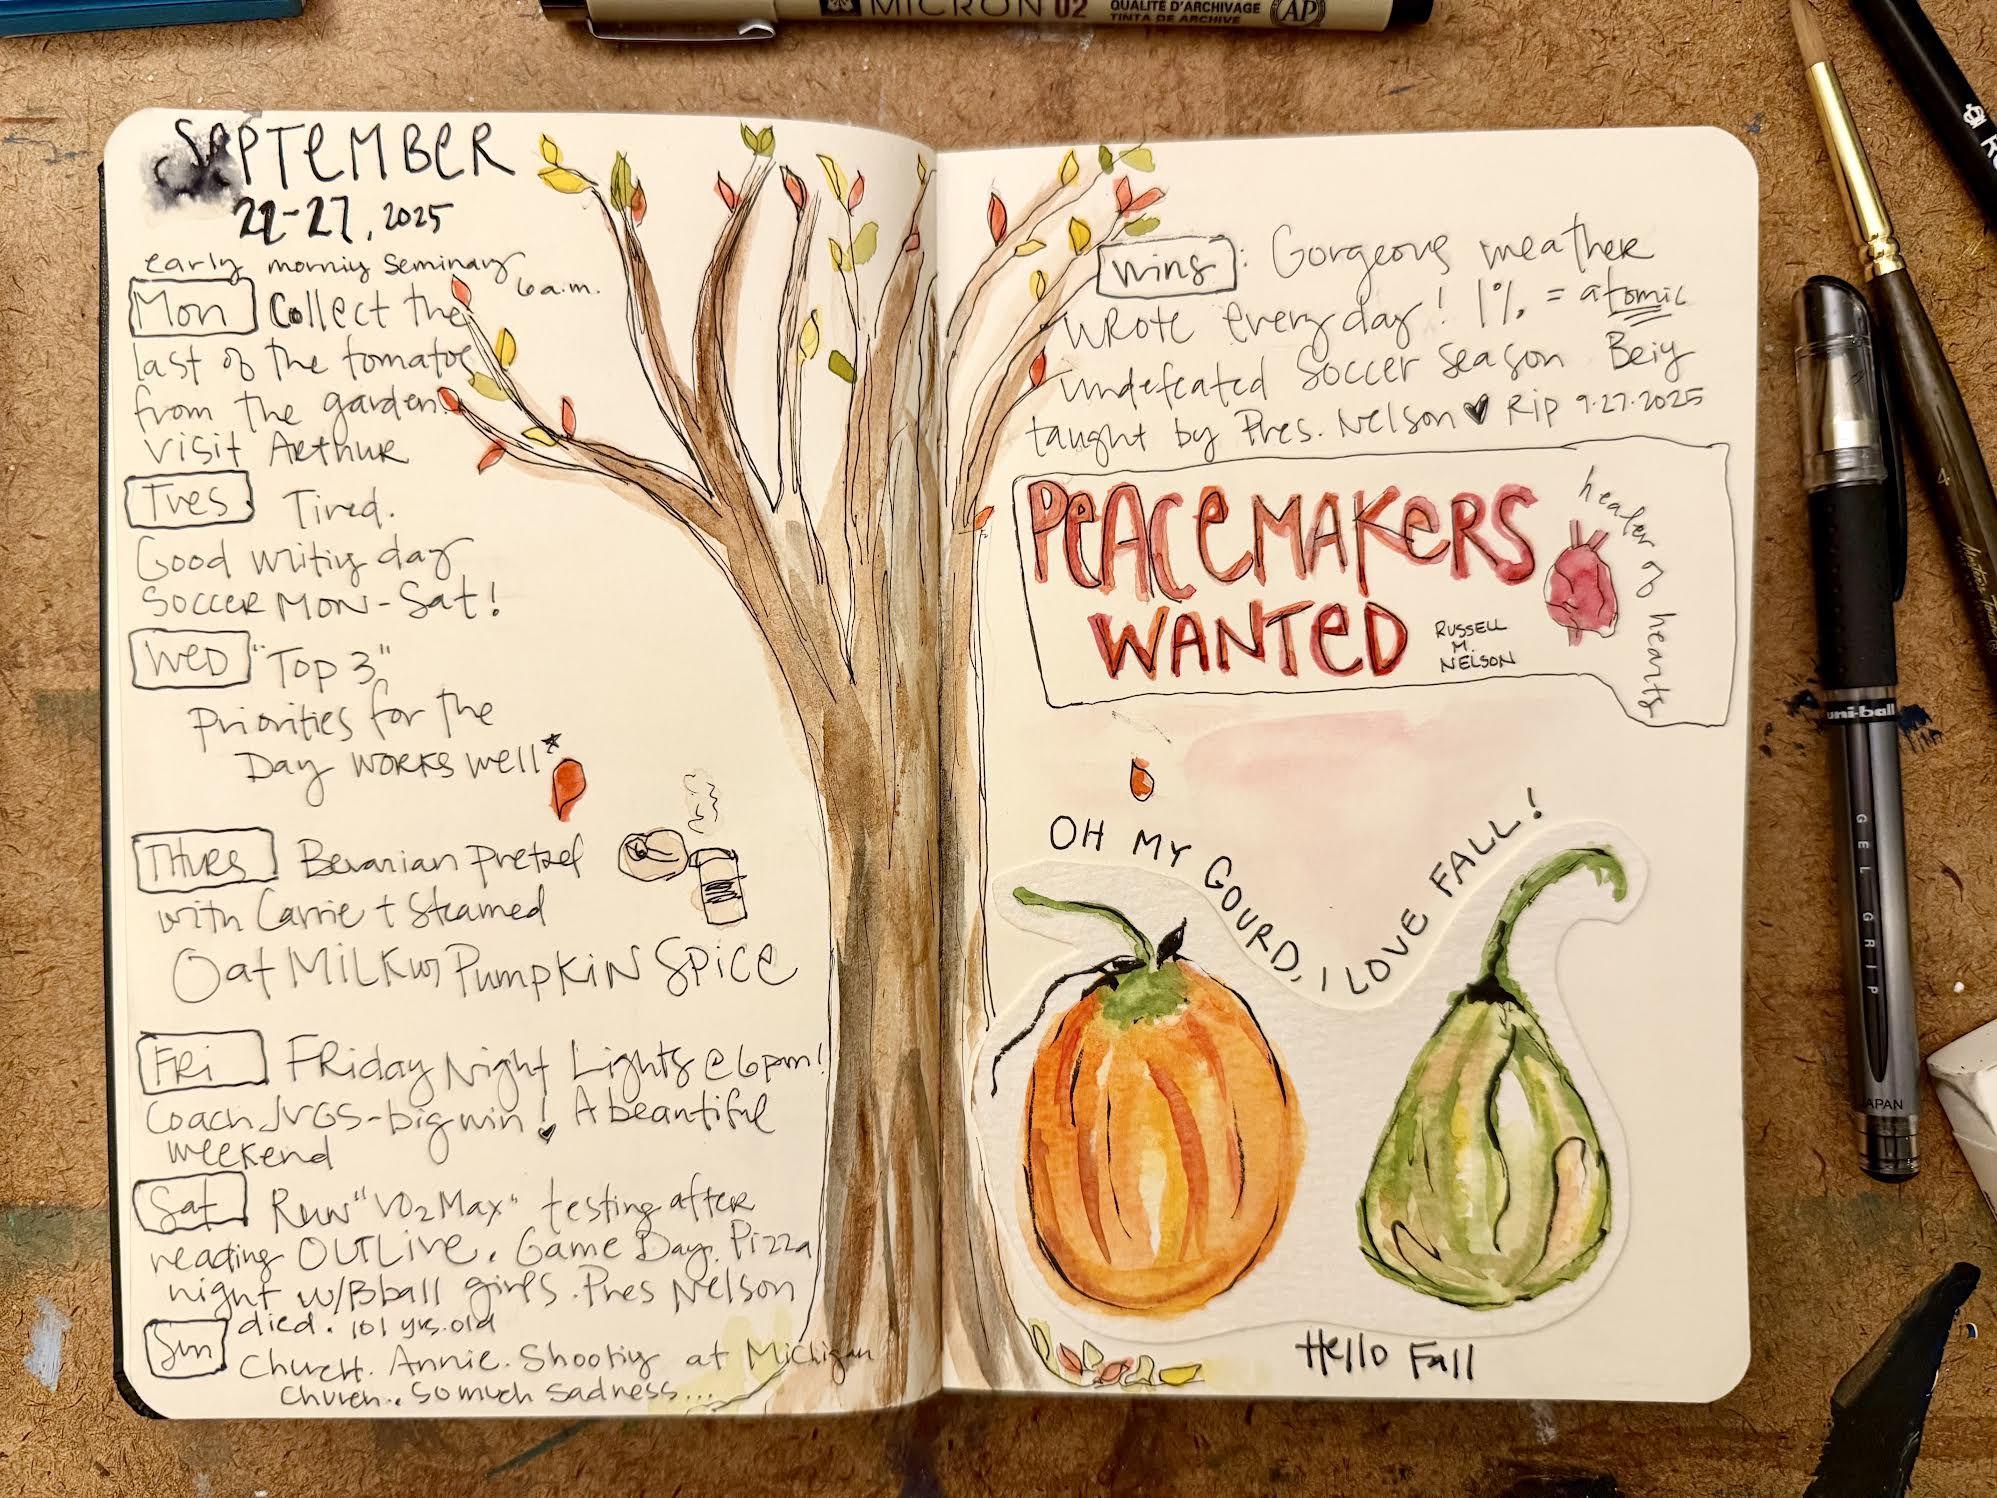 MICRON 02
QUALITÉ D'ARCHIVAGE
TINTA DE ARCHIVE
AP
SEPTEMBER
22-27, 2025
early morning seminary
6 a.m.
Mon Collect the
last of the tomatoes
from the garden.
Visit Arthur
Tues Tired.
Good writing day
SOCCER MON-Sat!
WED "Top 3"
Priorities for the
Day WORKS well*
THURS Bavarian pretzel
with Carrie + Steamed
Oat MILK w/ PUMPKIN SPICE
FRI FRiday Night Lights @ 6pm!
Coach JVGS-big win! A beautiful
weekend
Sat Run "VO2 Max" testing after
reading OUTLIVE. Game Day. Pizza
night w/Bball girls. Pres Nelson
died. 101 yrs. old
Sun Church. Annie. Shooting at Michigan
church.. so much sadness...
wins: Gorgeous weather
WROTE every day! 1% = atomic
undefeated Soccer Season Being
taught by Pres. Nelson ♥ Rip 9.27.2025
PEACEMAKERS
WANTED
RUSSELL
M.
NELSON
healer of hearts
OH MY GOURD, I LOVE FALL!
Hello Fall
uni-ball
GEL GRIP
JAPAN
4